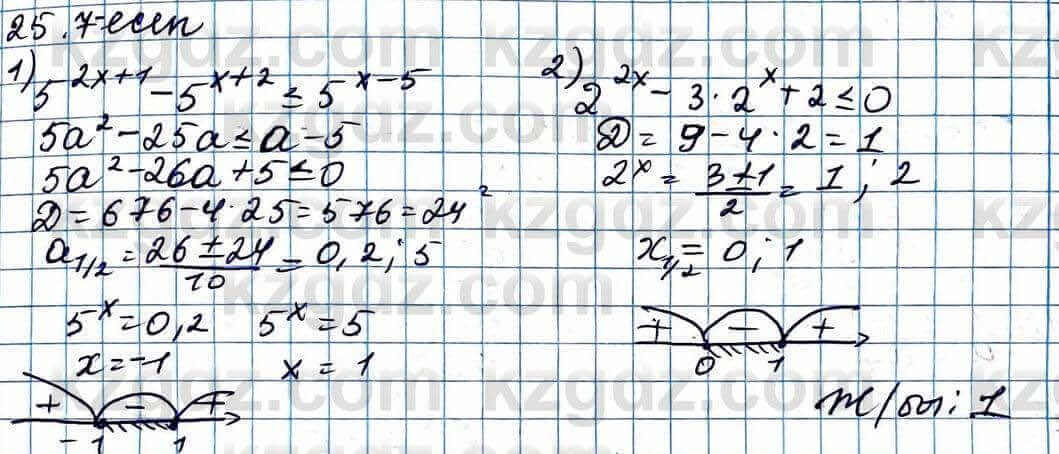 25.7-есеп
1) 5^{2x+1} - 5^{x+2} ≤ 5^x - 5
5a² - 25a ≤ a - 5
5a² - 26a + 5 ≤ 0
D = 676 - 4·25 = 576 = 24²
a_{1/2} = \frac{26 ± 24}{10} = 0,2; 5
5^x = 0,2 5^x = 5
x = -1 x = 1
+ - +
-1 1
2) 2^{2x} - 3·2^x + 2 ≤ 0
D = 9 - 4·2 = 1
2^x = \frac{3 ± 1}{2} = 1; 2
x_{1/2} = 0; 1
+ - +
0 1
ж/бы: 1
kzgdz.com